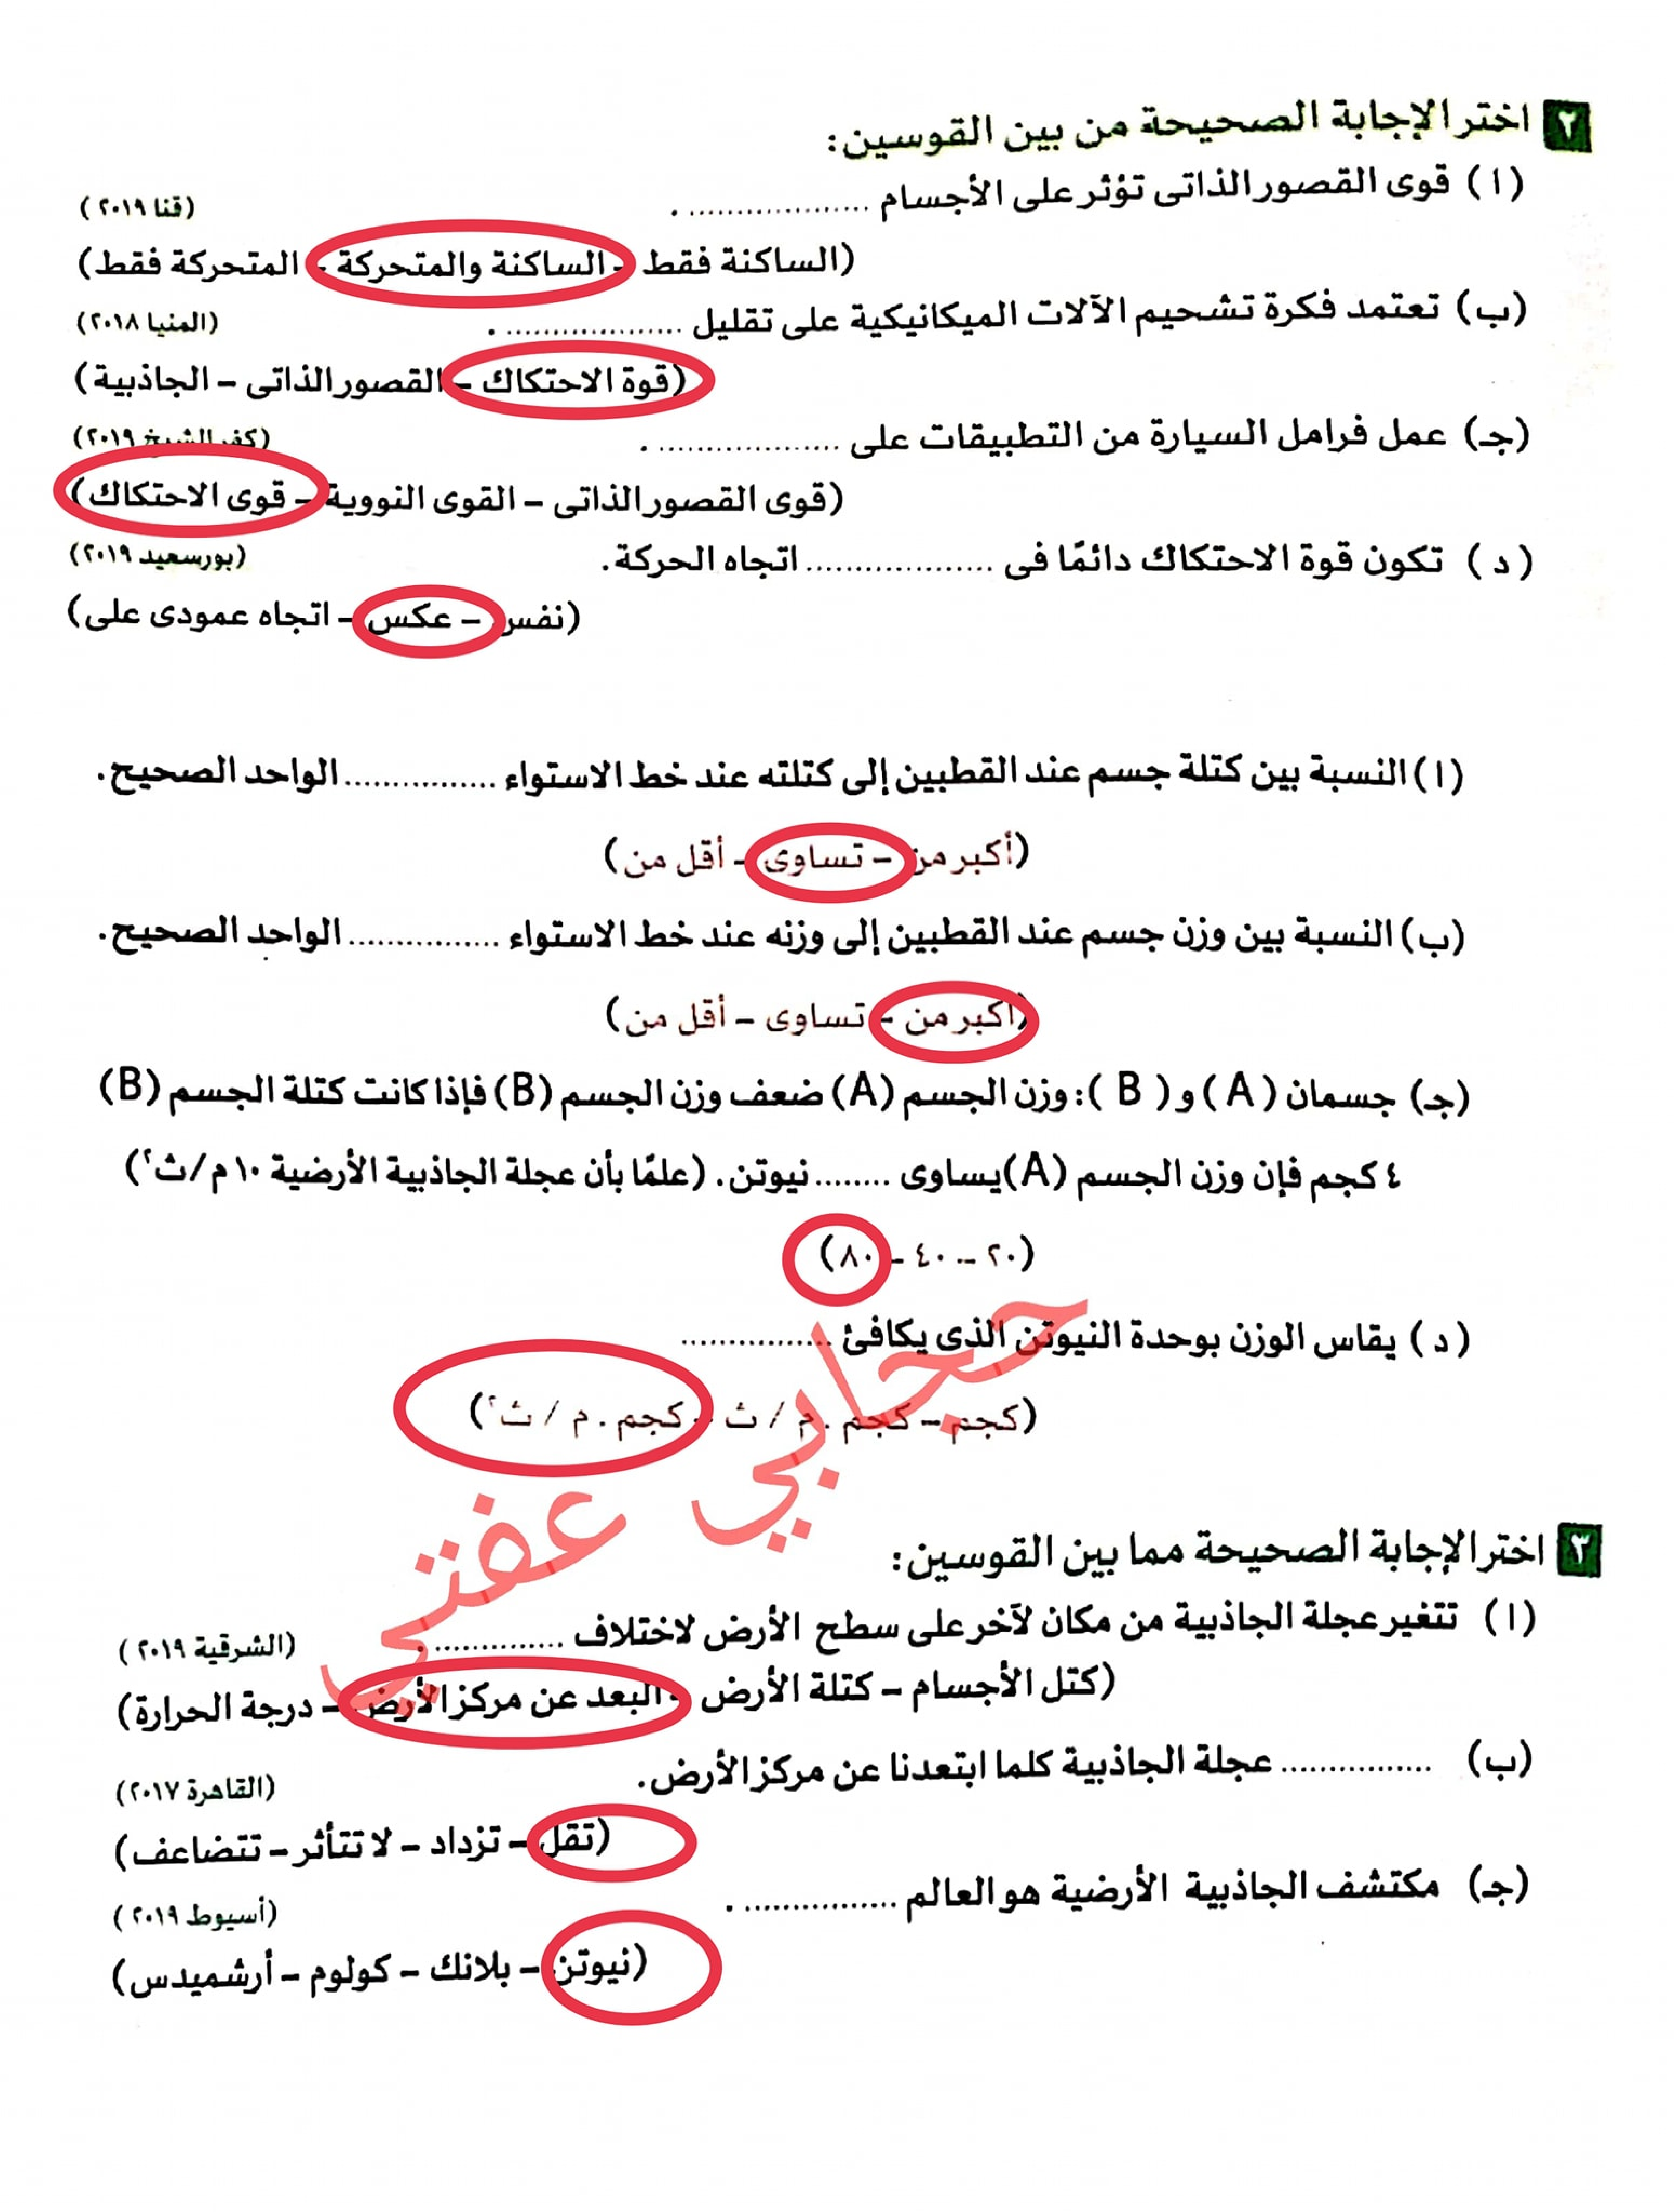 ٢ اختر الإجابة الصحيحة من بين القوسين:
(ا) قوى القصور الذاتى تؤثر على الأجسام .................... . (قنا ٢٠١٩)
(الساكنة فقط - الساكنة والمتحركة - المتحركة فقط)
(ب) تعتمد فكرة تشحيم الآلات الميكانيكية على تقليل .................... . (المنيا ٢٠١٨)
(قوة الاحتكاك - القصور الذاتى - الجاذبية)
(جـ) عمل فرامل السيارة من التطبيقات على .................... . (كفر الشيخ ٢٠١٩)
(قوى القصور الذاتى - القوى النووية - قوى الاحتكاك)
(د) تكون قوة الاحتكاك دائمًا فى .................... اتجاه الحركة. (بورسعيد ٢٠١٩)
(نفس - عكس - اتجاه عمودى على)
(ا) النسبة بين كتلة جسم عند القطبين إلى كتلته عند خط الاستواء ................ الواحد الصحيح.
(أكبر من - تساوى - أقل من)
(ب) النسبة بين وزن جسم عند القطبين إلى وزنه عند خط الاستواء ................ الواحد الصحيح.
(أكبر من - تساوى - أقل من)
(جـ) جسمان (A) و (B): وزن الجسم (A) ضعف وزن الجسم (B) فإذا كانت كتلة الجسم (B)
٤ كجم فإن وزن الجسم (A) يساوى ........ نيوتن. (علمًا بأن عجلة الجاذبية الأرضية ١٠ م/ث٢)
(٢٠ - ٤٠ - ٨٠)
(د) يقاس الوزن بوحدة النيوتن الذى يكافئ ................
(كجم - كجم . م / ث - كجم . م / ث٢)
حجابي عفتي
٣ اختر الإجابة الصحيحة مما بين القوسين:
(ا) تتغير عجلة الجاذبية من مكان لآخر على سطح الأرض لاختلاف ................ . (الشرقية ٢٠١٩)
(كتل الأجسام - كتلة الأرض - البعد عن مركز الأرض - درجة الحرارة)
(ب) ................ عجلة الجاذبية كلما ابتعدنا عن مركز الأرض. (القاهرة ٢٠١٧)
(تقل - تزداد - لا تتأثر - تتضاعف)
(جـ) مكتشف الجاذبية الأرضية هو العالم ................ . (أسيوط ٢٠١٩)
(نيوتن - بلانك - كولوم - أرشميدس)